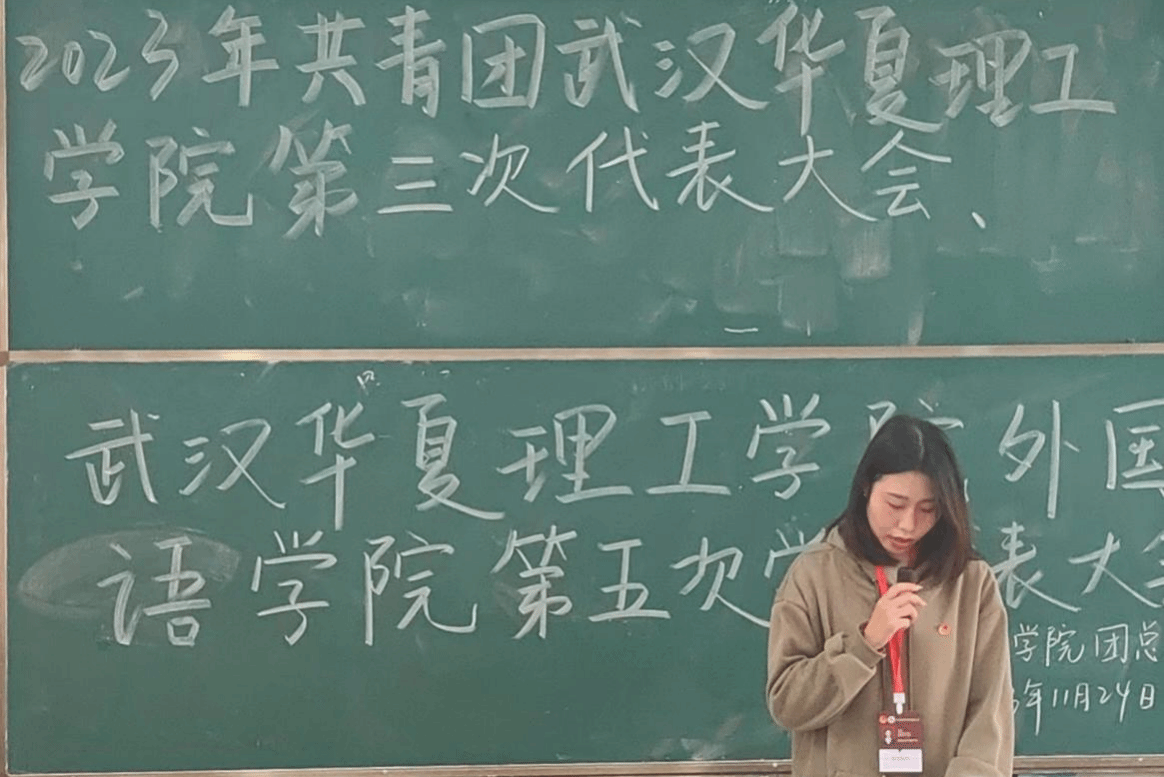 2023年共青团武汉华夏理工
学院第三次代表大会、
武汉华夏理工学院外国
语学院第五次学表大会
学院团总
3年11月24日